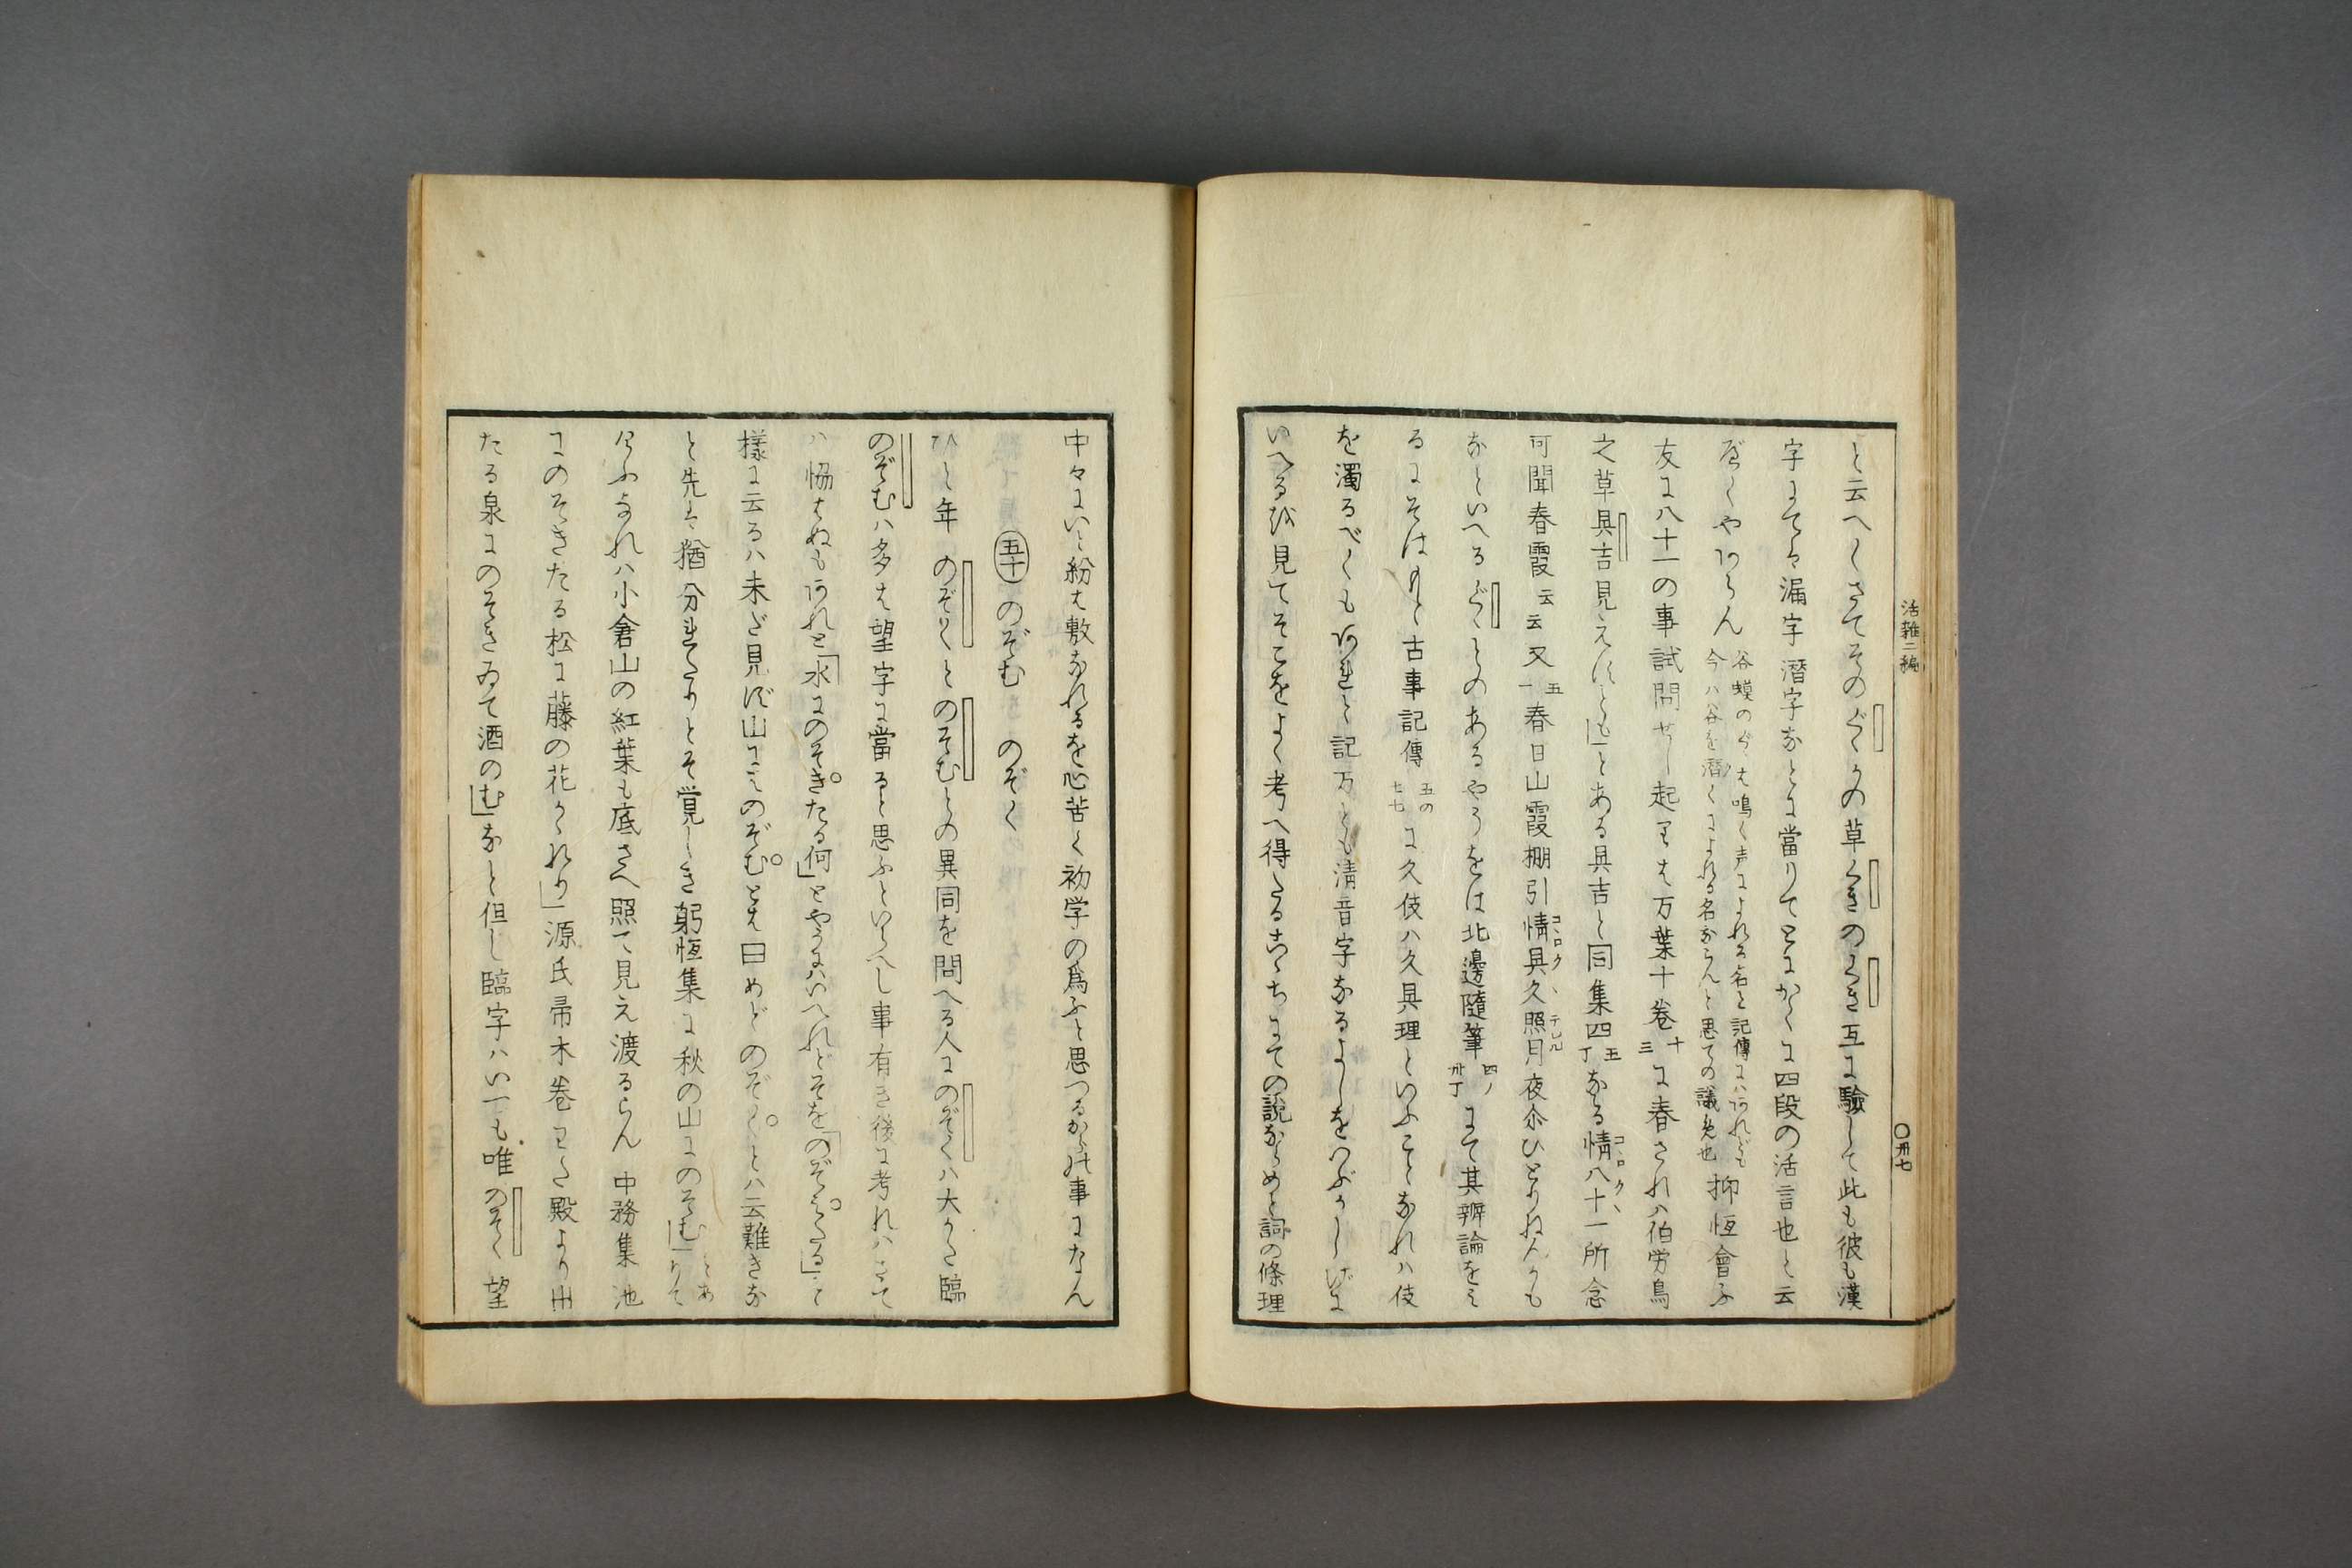 活雜二編
〇卅七
と云へしさてその
の草くきのくき互に驗して此も彼も漢
字にては漏字潛字なとに當りてとにかくに四段の活言也と云
へくやあらん
谷蟆のくゝは鳴く声によれる名と記傳にハあれとも
今ハ谷を潛くによれる名ならんと思ての議也
抑恒會ふ
友に八十一の事試問せし起りは万葉十卷
十三
に春されハ伯労鳥
之草具吉見えすともとある具吉と同集四
五丁
なる情八十一所念
可聞春霞云云又
五一
春日山霞棚引情具久照月夜尒ひとりねんかも
なといへるくゝとのあるやうをは北邊隨筆
四ノ卅丁
にて其辨論をミ
るにそは
古事記傳
五の七七
に久伎ハ久具理といふことなれハ伎
を濁るべくもあれと記万とも清音字なるよしを
いへるを見てそこをよく考へ得たるこゝちにての説ならめと詞の條理
中々にいと紛はしくなれるを心苦く初学の爲ふと思つるから此事になん
五十 のぞむ のぞく
ひと年のぞくとのぞむとの異同を問へる人にのぞくハ大かた臨
のぞむハ多は望字に當ると思ふといらへし事有き後に考れハさて
ハ恊はぬもあれと「水にのそきたる何」とやうにハいへれとそを「のぞみたる」と
樣に云るハ未ざ見ず山にミのぞむとは曰めどのぞくとハ云難きな
と先は猶分れたりとそ覚しき躬恒集に秋の山にのそむ
とありて
けふなれハ小倉山の紅葉も底さへ照て見え渡るらん 中務集池
にのそきたる松に藤の花かゝれり」源氏帚木卷わた殿より出
たる泉にのそきゐて酒のむ」なと但し臨字ハい一も唯のそく望